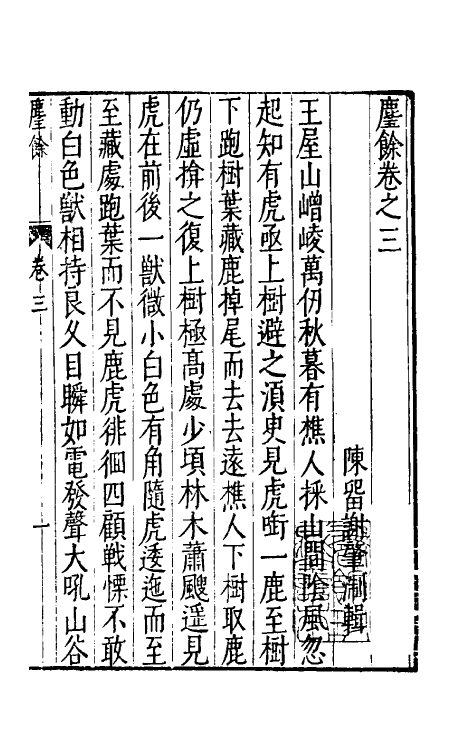 麈餘卷之三
陳留謝肇淛輯
王屋山嶒崚萬仞秋暮有樵人採山間陰風忽
起知有虎亟上樹避之湏臾見虎啣一鹿至樹
下跑樹葉藏鹿掉尾而去去遠樵人下樹取鹿
仍虛揜之復上樹極高處少頃林木蕭颼遥見
虎在前後一獸微小白色有角隨虎逶迤而至
至藏處跑葉而不見鹿虎徘徊四顧戰慄不敢
動白色獸相持良久目瞬如電發聲大吼山谷
麈餘 卷三 一